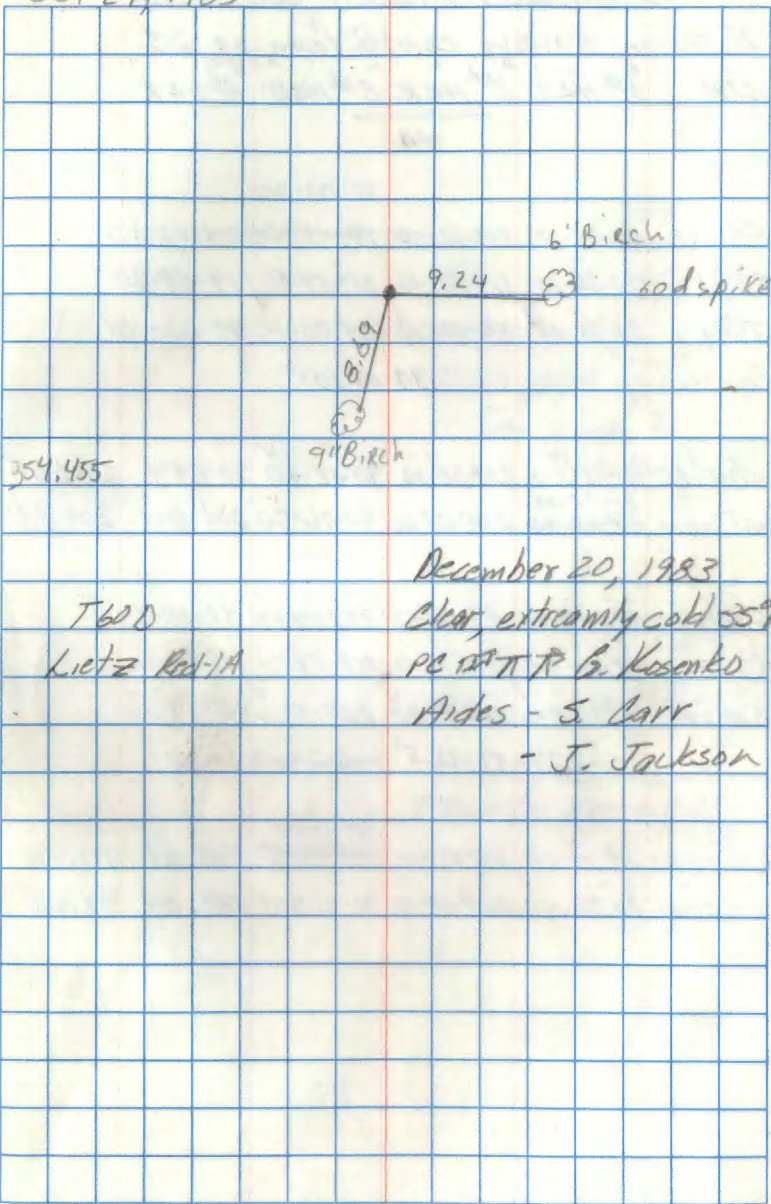 6" Birch
9.24
60d spike
8.69
9" Birch
354.455
December 20, 1983
T60D
Clear, extreamly cold 35°
Lietz Red-1A
PC G. Kosenko
Aides - S. Carr
- J. Jackson